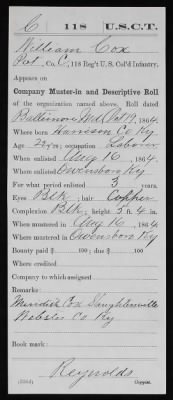 C | 118 | U.S.C.T.
William Cox
Pvt., Co. C, 118 Reg't U.S. Col'd Infantry.
Appears on
Company Muster-in and Descriptive Roll
of the organization named above. Roll dated
Baltimore Md. Oct 19, 1864.
Where born Harrison Co Ky
Age 22 y'rs; occupation Laborer
When enlisted Aug 16, 1864.
Where enlisted Owensboro Ky
For what period enlisted 3 years.
Eyes Blk; hair
Complexion Blk; height 5 ft. 4 in.
When mustered in Aug 16, 1864
Where mustered in Owensboro Ky
Bounty paid $ 100; due $ 100
Where credited
Company to which assigned
Remarks:
Cox Slaughterville
Webster Co Ky
Book mark:
Reynolds
Copyist.